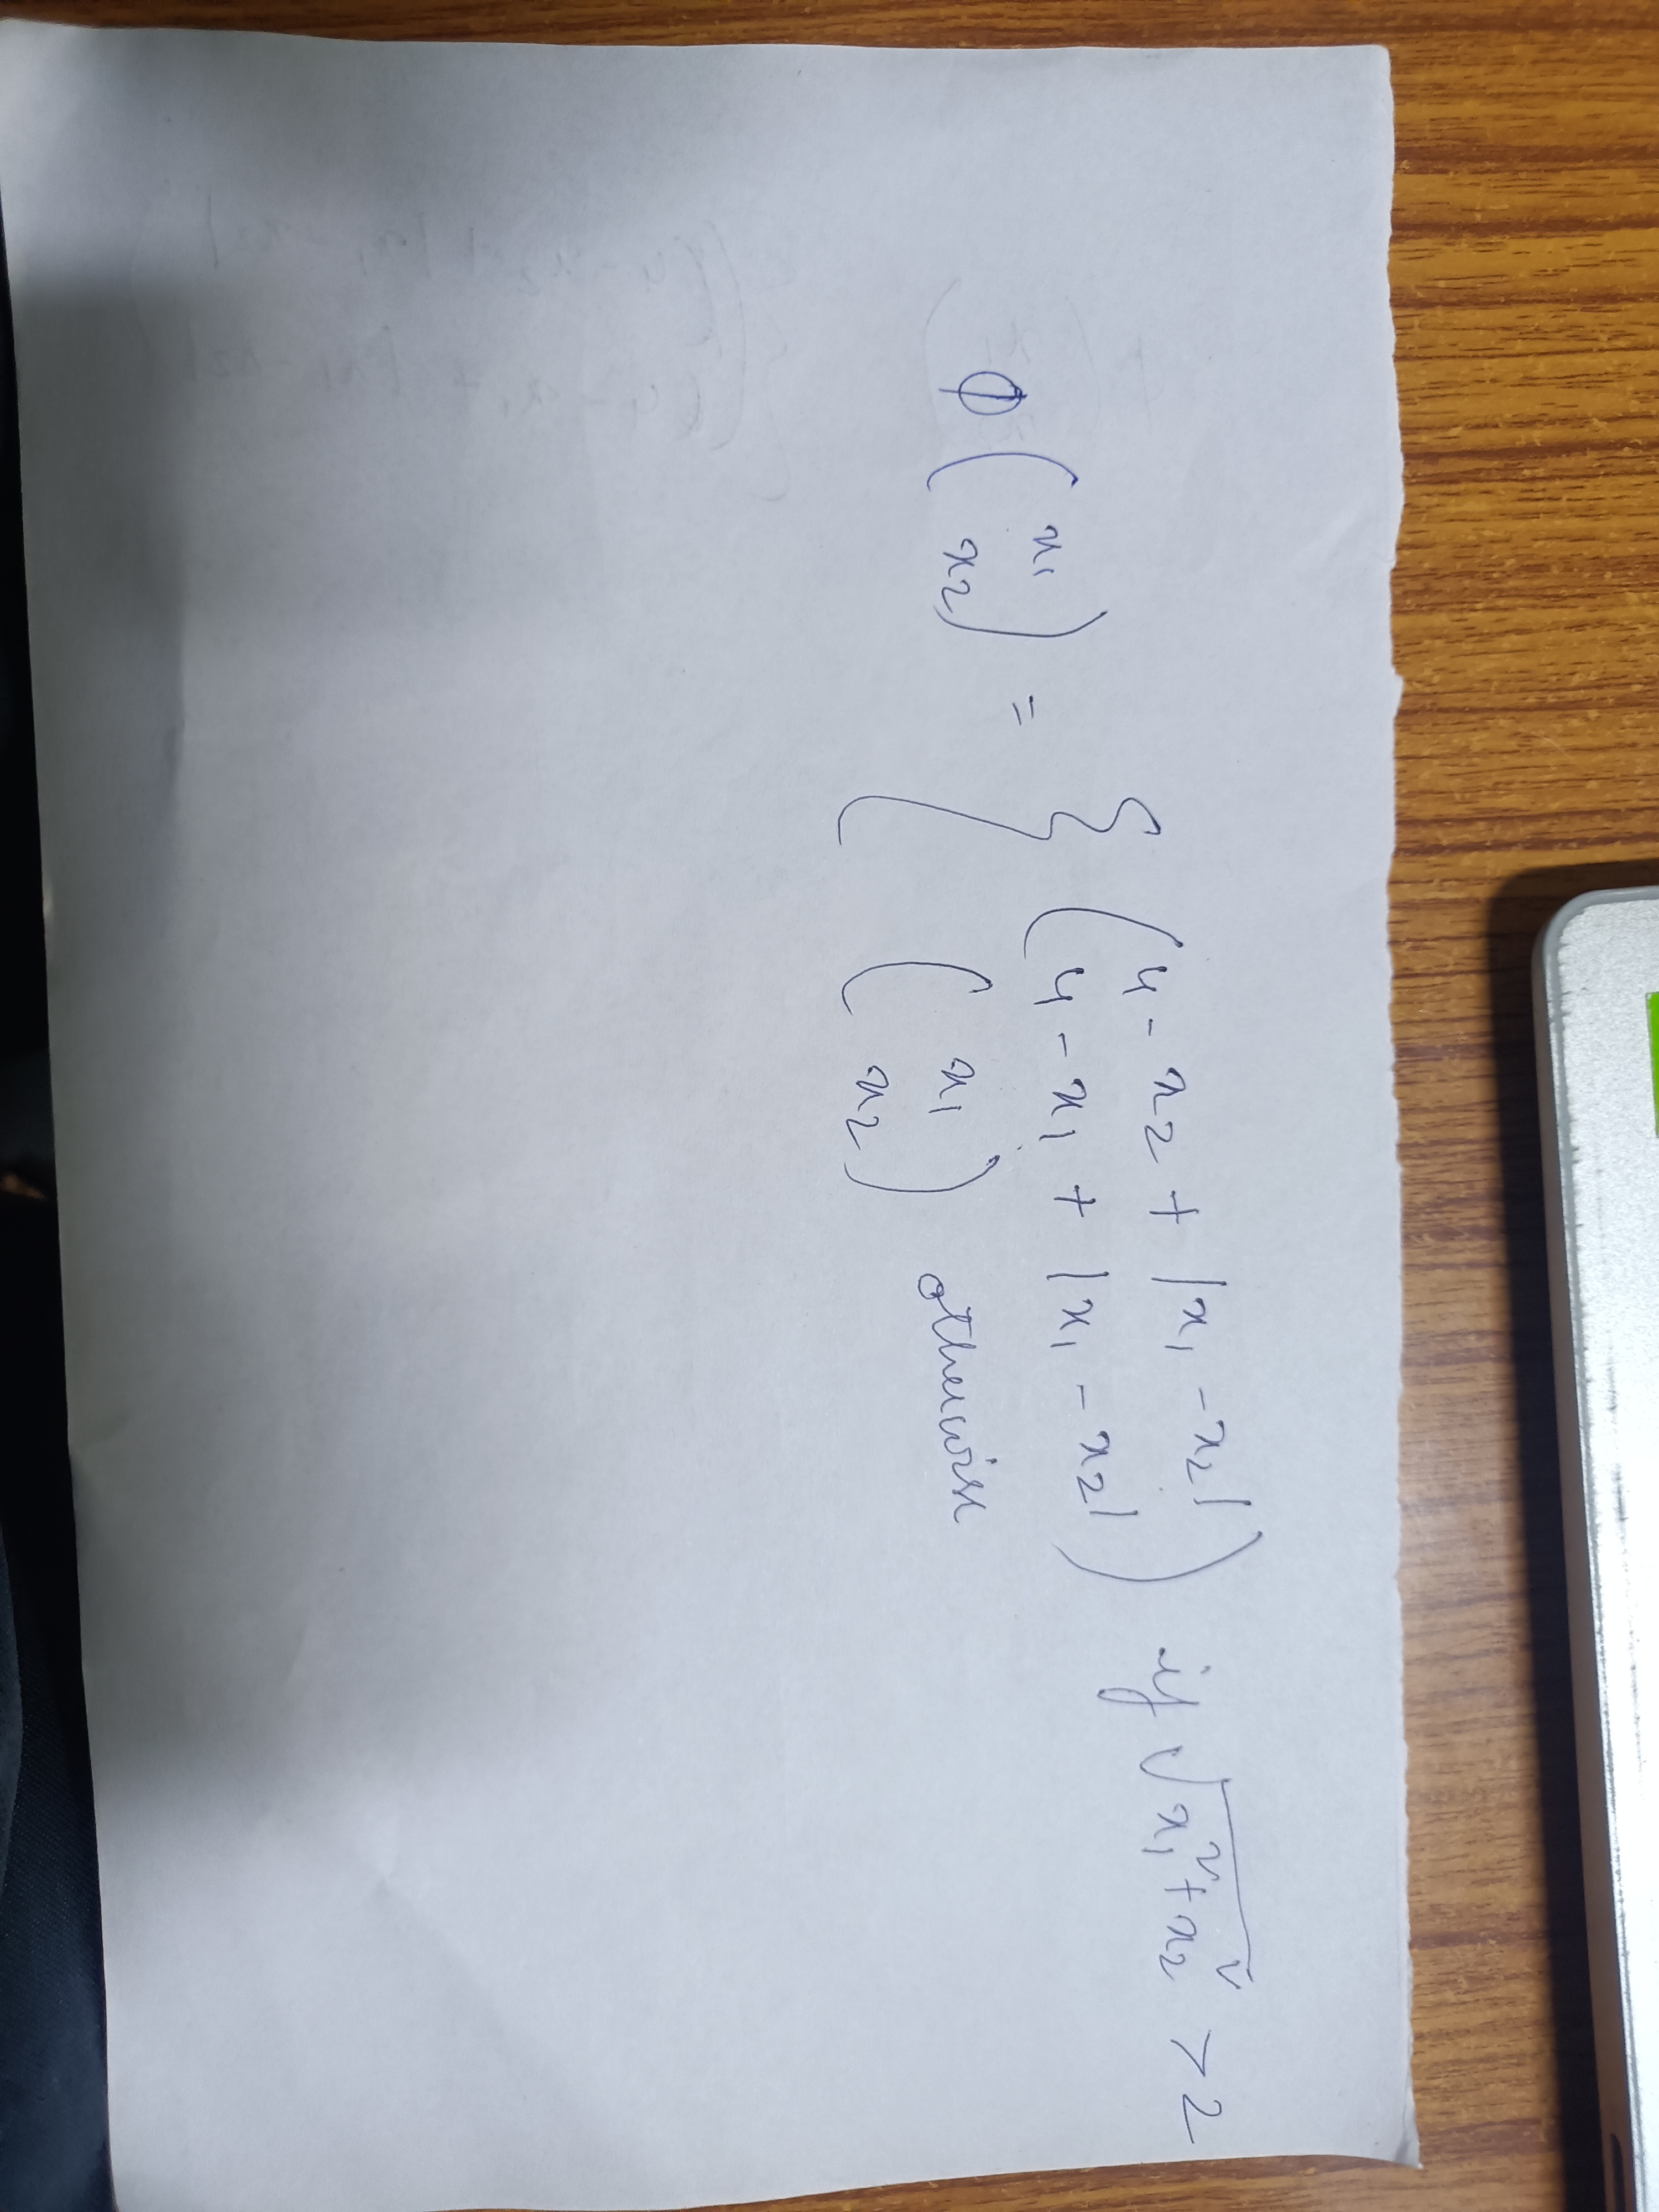 Φ ( x₁ x₂ ) = { ( 4 - x₂ + |x₁ - x₂|
4 - x₁ + |x₁ - x₂| ) if √(x₁² + x₂²) > 2
( x₁ x₂ ) otherwise